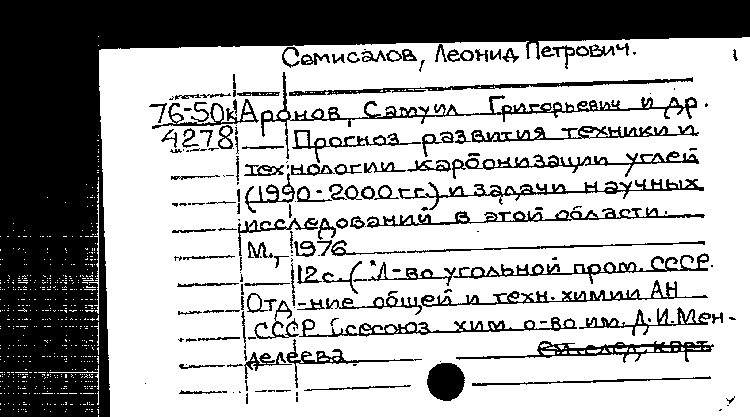 Семисалов, Леонид Петрович.
76-50к Аронов, Самуил Григорьевич и др.
4278 Прогноз развития техники и
технологии карбонизации углей
(1990-2000 гг.) и задачи научных
исследований в этой области.
М., 1976
12с. (М-во угольной пром. СССР.
Отд-ние общей и техн. химии АН
СССР Всесоюз. хим. о-во им. Д.И.Мен-
делеева.
см. след. карт.